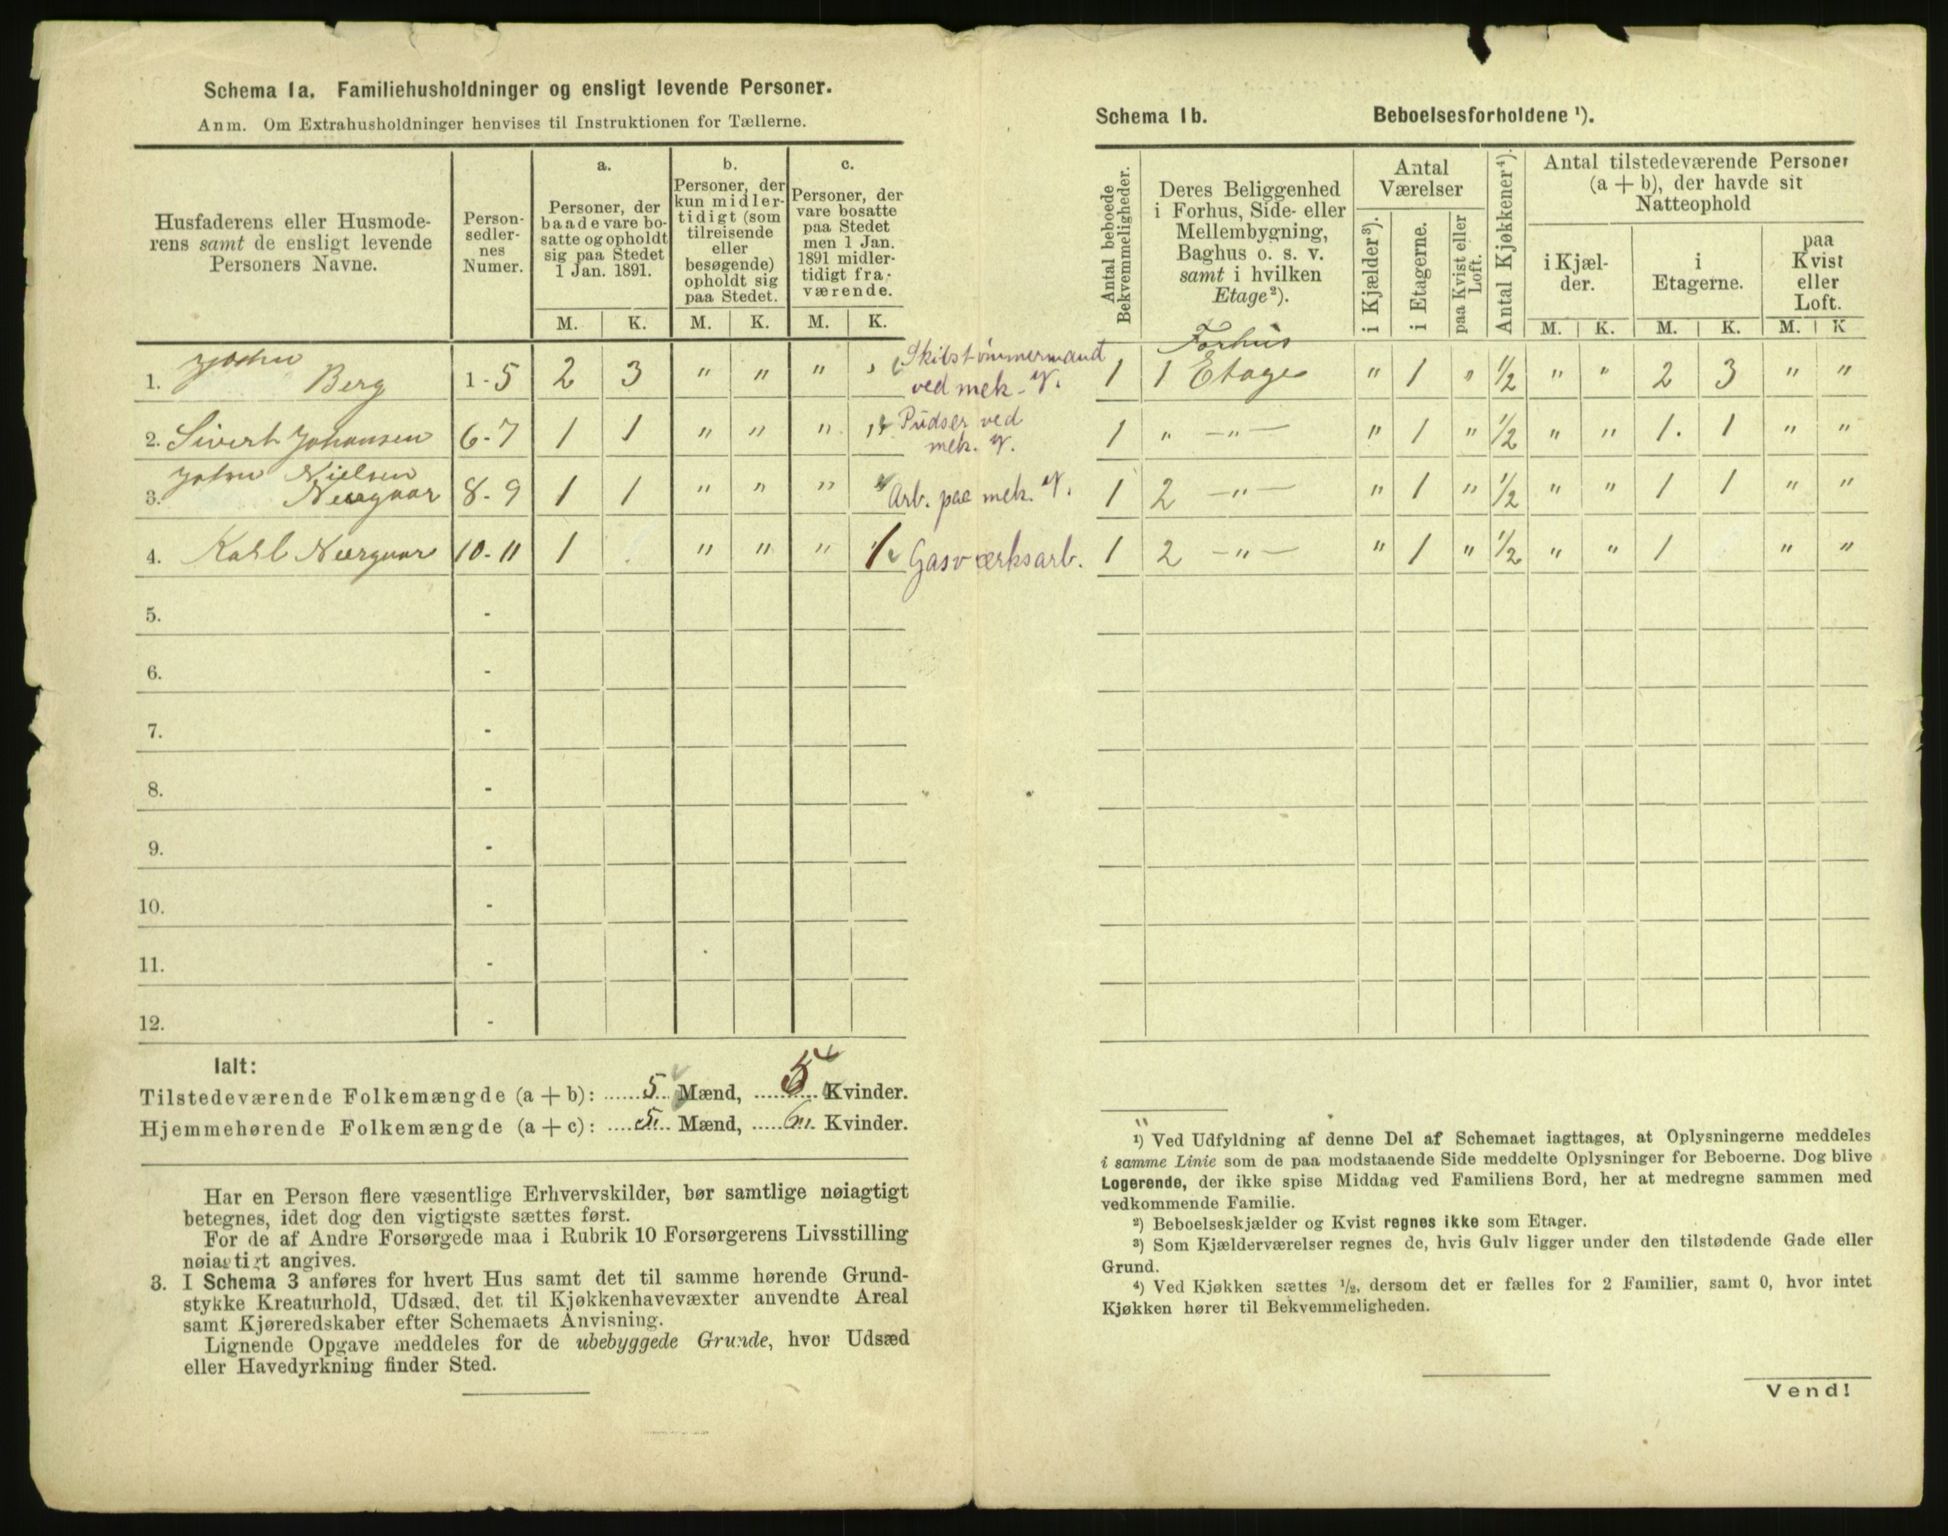 Schema 1a. Familiehusholdninger og ensligt levende Personer.
Anm. Om Extrahusholdninger henvises til Instruktionen for Tællerne.
Husfaderens eller Husmode-
rens samt de ensligt levende
Personers Navne.
Person-
sedler-
nes
Numer.
a.
Personer, der
baade vare bo-
satte og opholdt
sig paa Stedet
1 Jan. 1891.
b.
Personer, der
kun midler-
tidigt (som
tilreisende
eller
besøgende)
opholdt sig
paa Stedet.
c.
Personer, der
vare bosatte
paa Stedet
men 1 Jan.
1891 midler-
tidigt fra-
værende.
M. K. M. K. M. K.
1. John Berg 1-5 2 3 " " "
Skibstømmermand
ved mek. V.
2. Sivert Johansen 6-7 1 1 " " "
Pudser ved
mek. V.
3. John Nielsen
Neergaar 8-9 1 1 " " " Arb. paa mek. V.
4. Karl Neergaar 10-11 1 " " " 1 Gasværksarb.
5. -
6. -
7. -
8. -
9. -
10. -
11. -
12. -
Ialt:
Tilstedeværende Folkemængde (a + b): 5 Mænd, 5 Kvinder.
Hjemmehørende Folkemængde (a + c): 5 Mænd, 6 Kvinder.
Har en Person flere væsentlige Erhvervskilder, bør samtlige nøiagtigt
betegnes, idet dog den vigtigste sættes først.
For de af Andre Forsørgede maa i Rubrik 10 Forsørgerens Livsstilling
nøiagtigt angives.
3. I Schema 3 anføres for hvert Hus samt det til samme hørende Grund-
stykke Kreaturhold, Udsæd, det til Kjøkkenhavevæxter anvendte Areal
samt Kjøreredskaber efter Schemaets Anvisning.
Lignende Opgave meddeles for de ubebyggede Grunde, hvor Udsæd
eller Havedyrkning finder Sted.
Schema 1b. Beboelsesforholdene ¹).
Antal beboede
Bekvemmeligheder.
Deres Beliggenhed
i Forhus, Side- eller
Mellembygning,
Baghus o. s. v.
samt i hvilken
Etage²).
Antal
Værelser
i Kjælder³).
i Etagerne.
paa Kvist eller
Loft.
Antal Kjøkkener⁴).
Antal tilstedeværende Personer
(a + b), der havde sit
Natteophold
i Kjæl-
der.
i
Etagerne.
paa
Kvist
eller
Loft.
M. K. M. K. M. K
Forhus
1 1 Etage " 1 " ½ " " 2 3 " "
1 " —"— " 1 " ½ " " 1. 1 " "
1 2 —"— " 1 " ½ " " 1 1 " "
1 2 —"— " 1 " ½ " " 1 " "
¹) Ved Udfyldning af denne Del af Schemaet iagttages, at Oplysningerne meddeles
i samme Linie som de paa modstaaende Side meddelte Oplysninger for Beboerne. Dog blive
Logerende, der ikke spise Middag ved Familiens Bord, her at medregne sammen med
vedkommende Familie.
²) Beboelseskjælder og Kvist regnes ikke som Etager.
³) Som Kjælderværelser regnes de, hvis Gulv ligger under den tilstødende Gade eller
Grund.
⁴) Ved Kjøkken sættes ½, dersom det er fælles for 2 Familier, samt 0, hvor intet
Kjøkken hører til Bekvemmeligheden.
Vend!